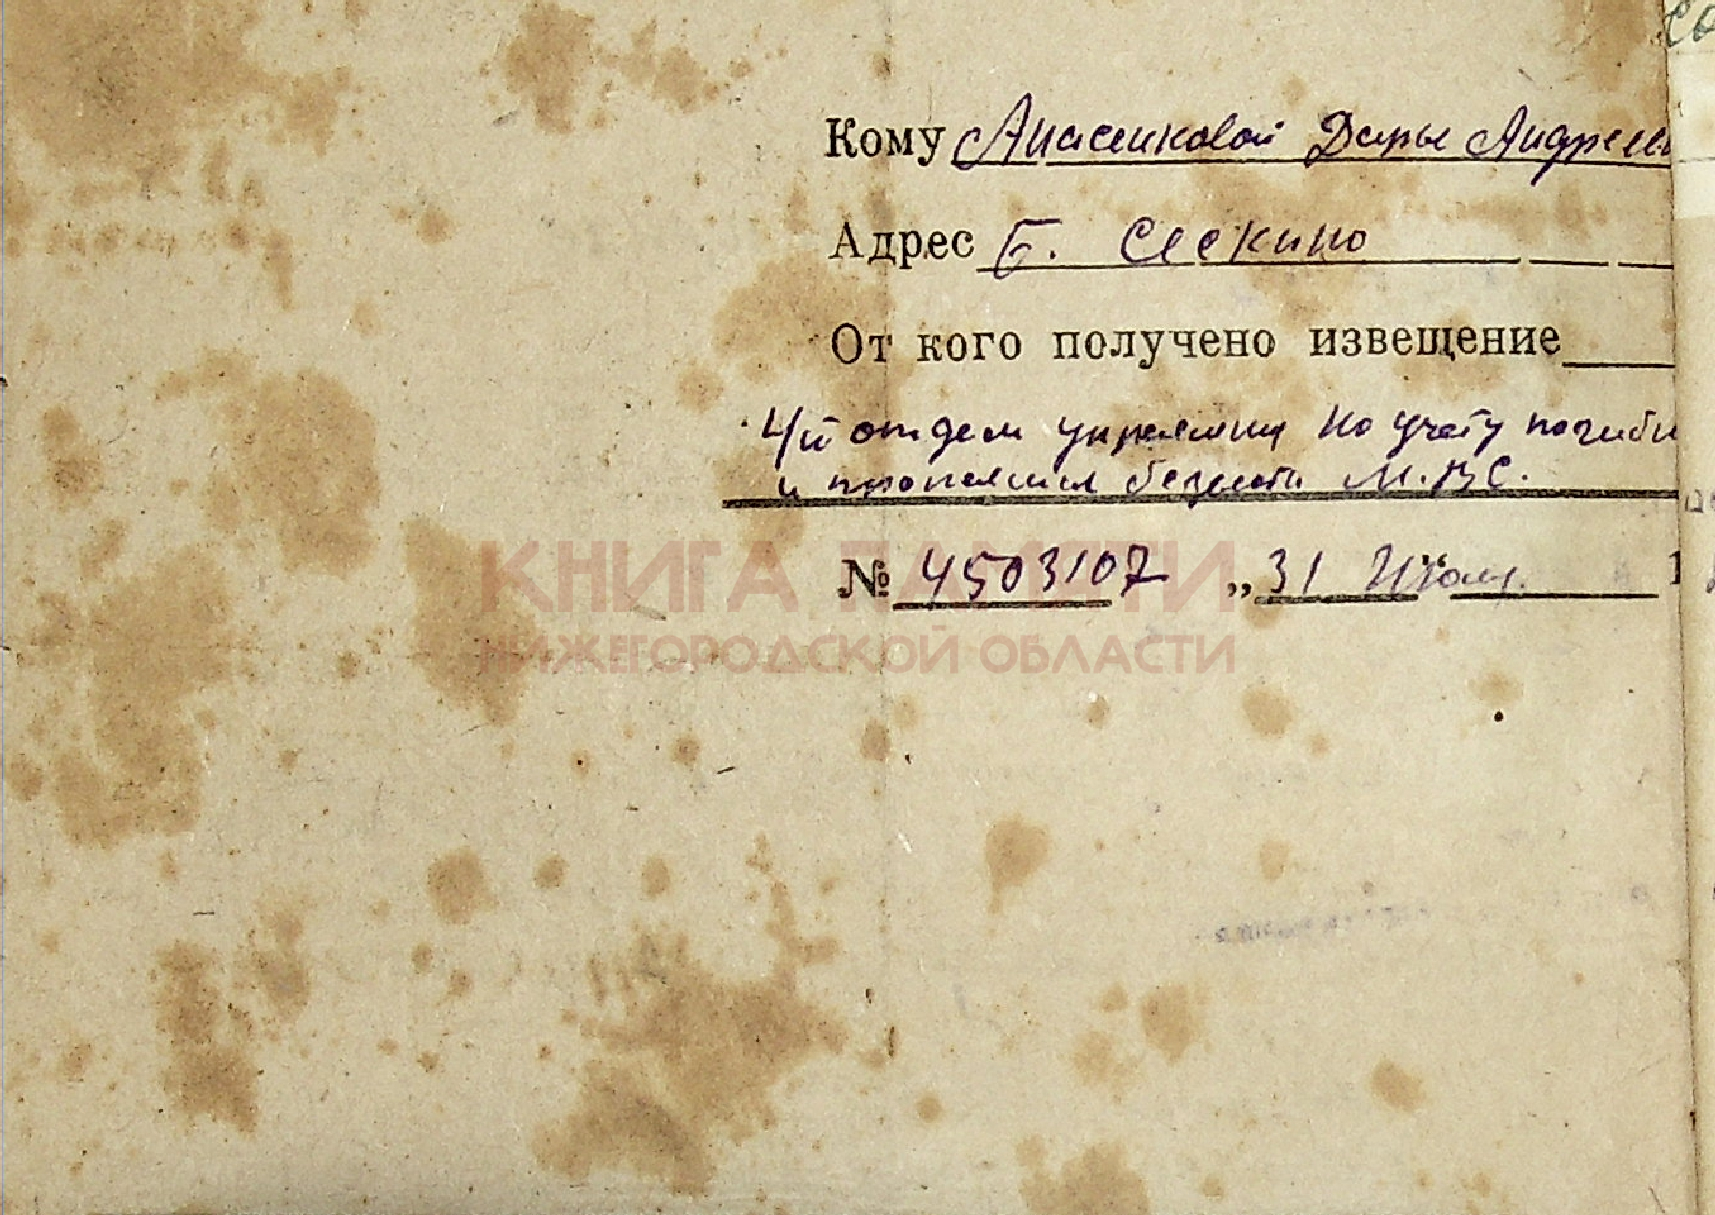 Кому Апасенковой Дарье Андреев
Адрес Б. Сескино
От кого получено извещение
4й отдел управления по учету погибш
и пропавших безвести М.В.С.
№ 4503107 „31 Июля. 1
КНИГА ПАМЯТИ
НИЖЕГОРОДСКОЙ ОБЛАСТИ